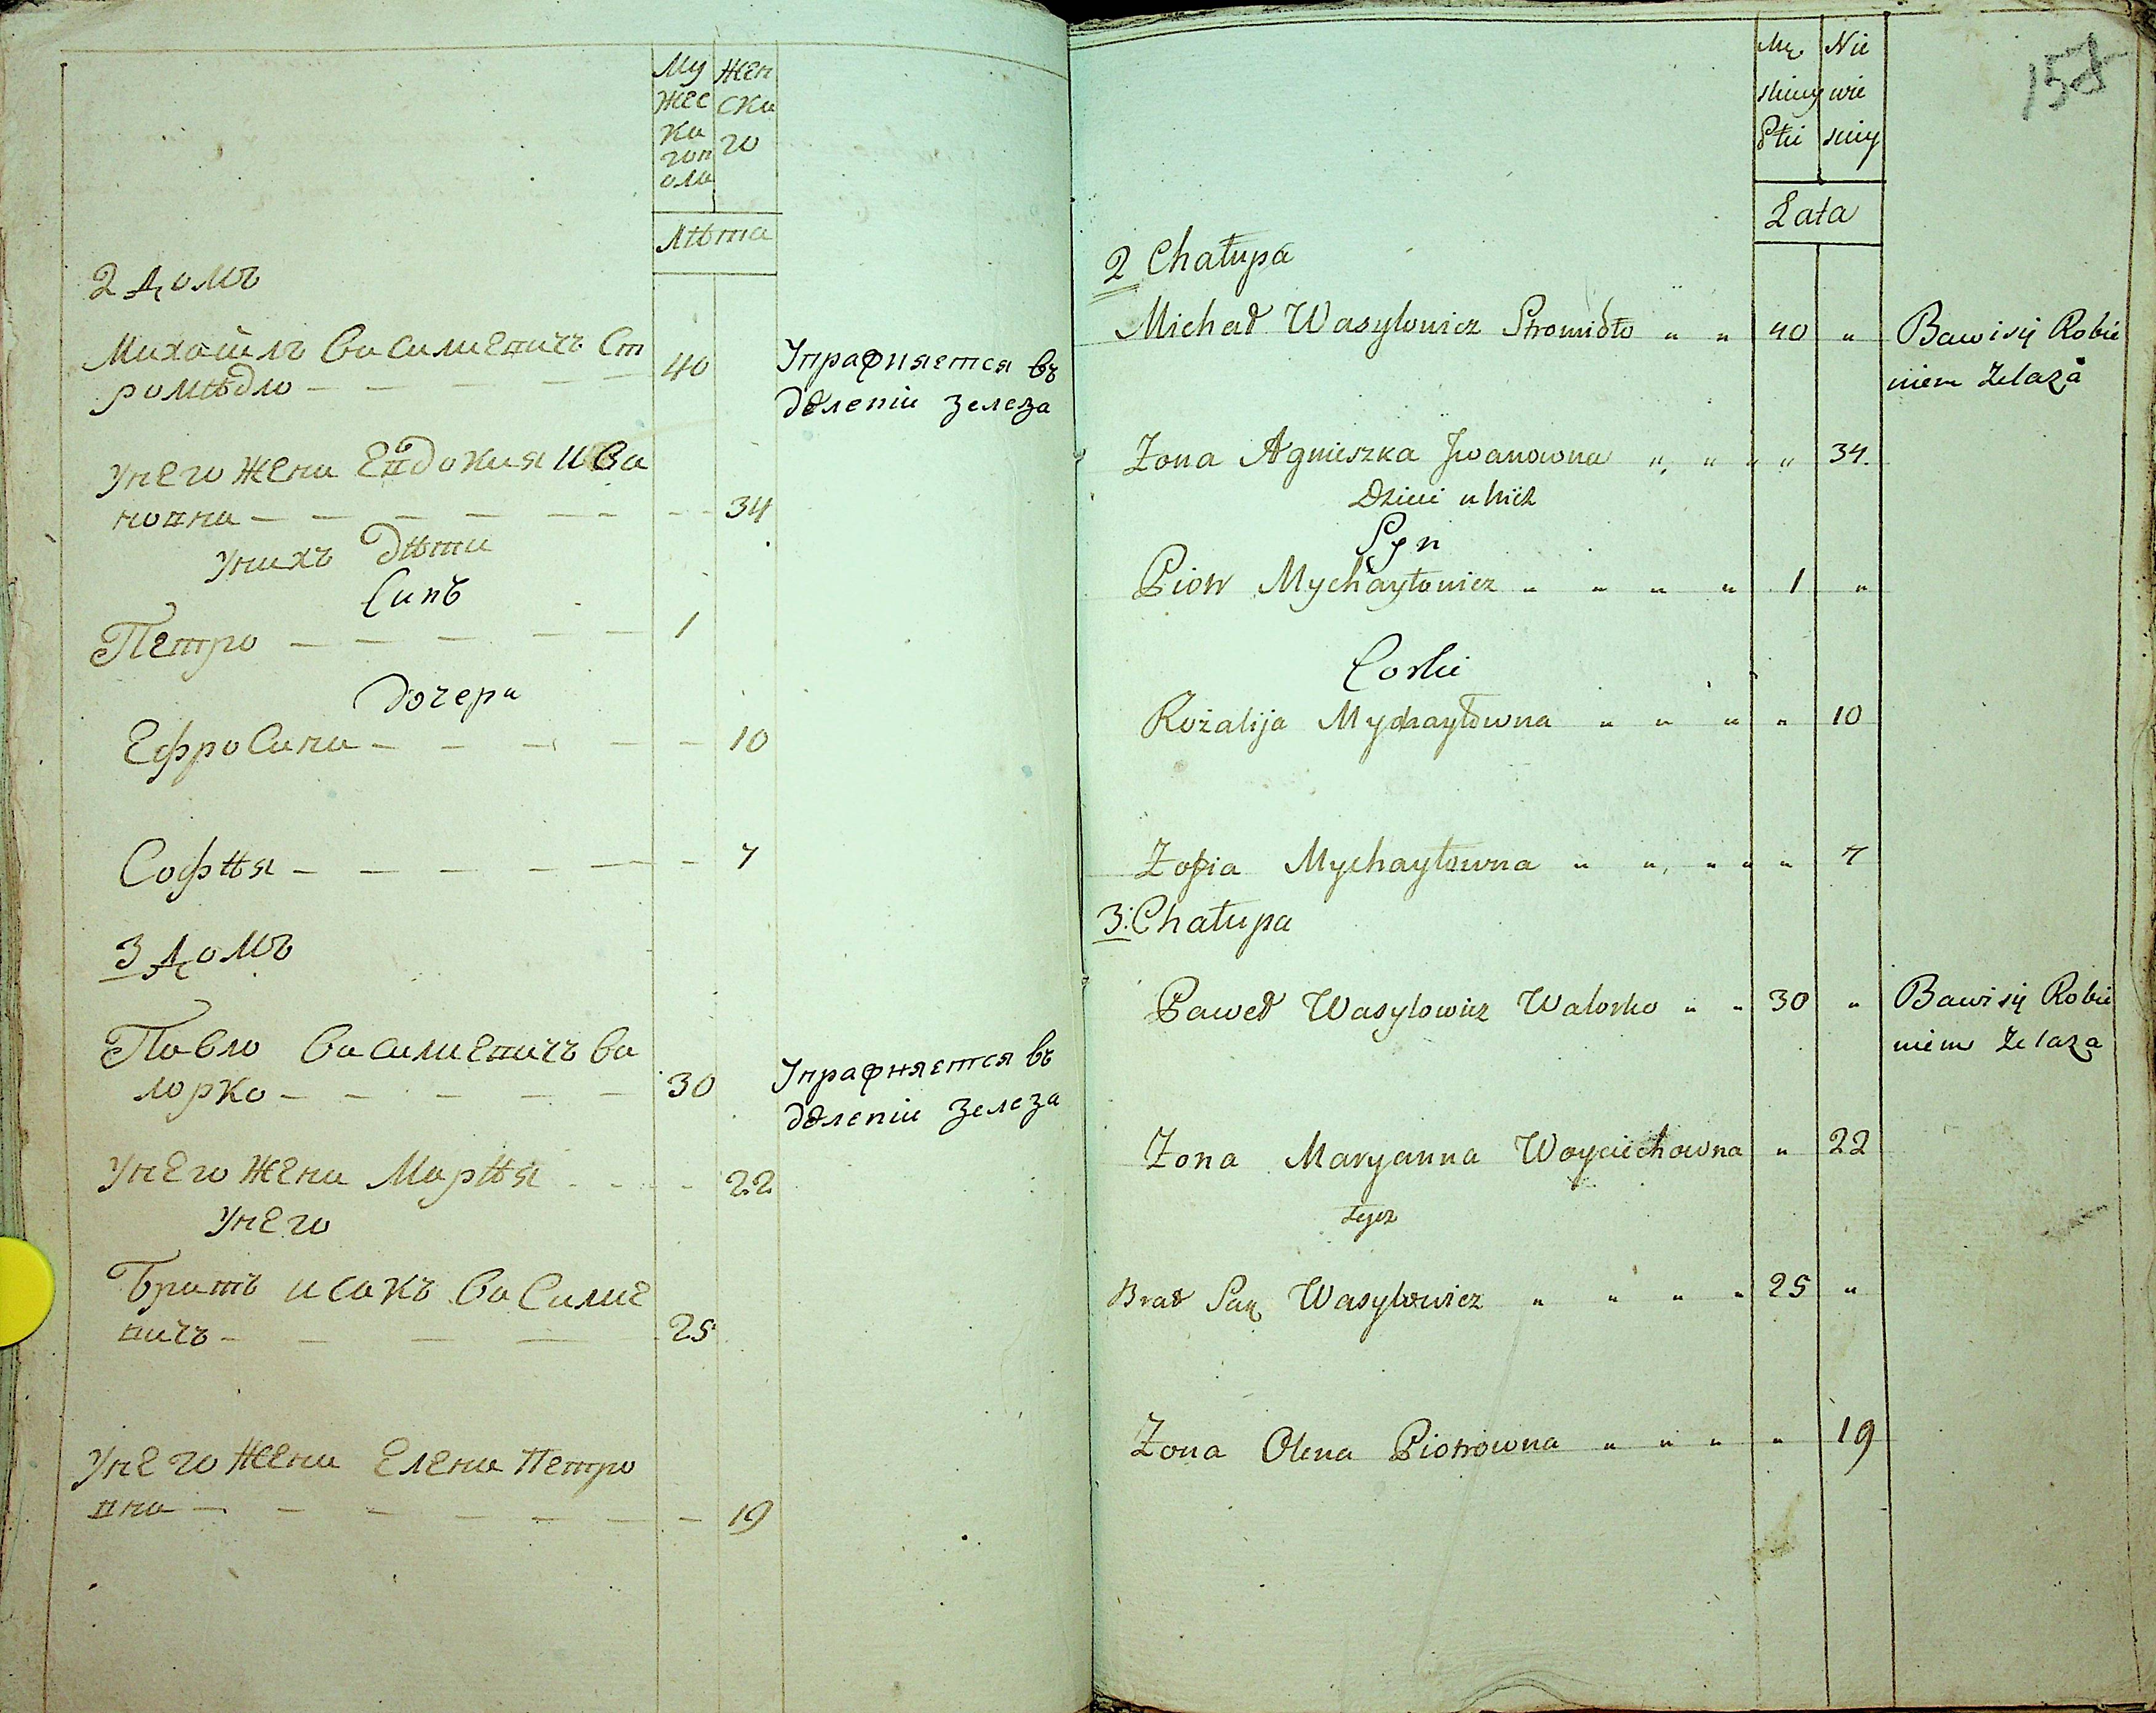 Му
жес
ка
гоп
ола
жен
ска
го
Лѣта
2 домъ
Михайлъ Василиевичъ Ст
ромѣдло — — — — — 40
Упражняется въ
дѣлении зелеза
Унего жена Евдокия Ива
новна — — — — — — 34
Унихъ дѣти
Синъ
Петро — — — — — 1
дочери
Ефросина — — — — — 10
Софѣя — — — — — — 7
3 домъ
Павло Василиевичъ Ва
лорко — — — — — 30
Упражняется въ
дѣлении зелеза
Унего жена Марѣя - - - 22
Унего
братъ исакъ Василие
вичъ — — — — 25
Унего жена Елена Петро
вна — — — — — — — 19
158
Mę
skiey
Płci
Nie
wie
sciey
Lata
2 Chałupa
Michał Wasylowicz Stromidło " " 40 "
Bawi się Robie
niem Żelaza
Żona Agnieszka Jwanowna " " " " 34.
Dzieci u nich
Syn
Piotr Mychayłowicz " " " " 1 "
Corki
Rożalija Mychayłowna " " " " 10
Zofia Mychayłowna " " " " " 7
3: Chałupa
Paweł Wasylowicz Walorko " " 30 "
Bawi się Robie
niem Żelaza
Żona Maryanna Woyciechowna " 22
tegoz
Brat Wasylowicz " " " " 25 "
Żona Olena Piotrowna " " " " 19